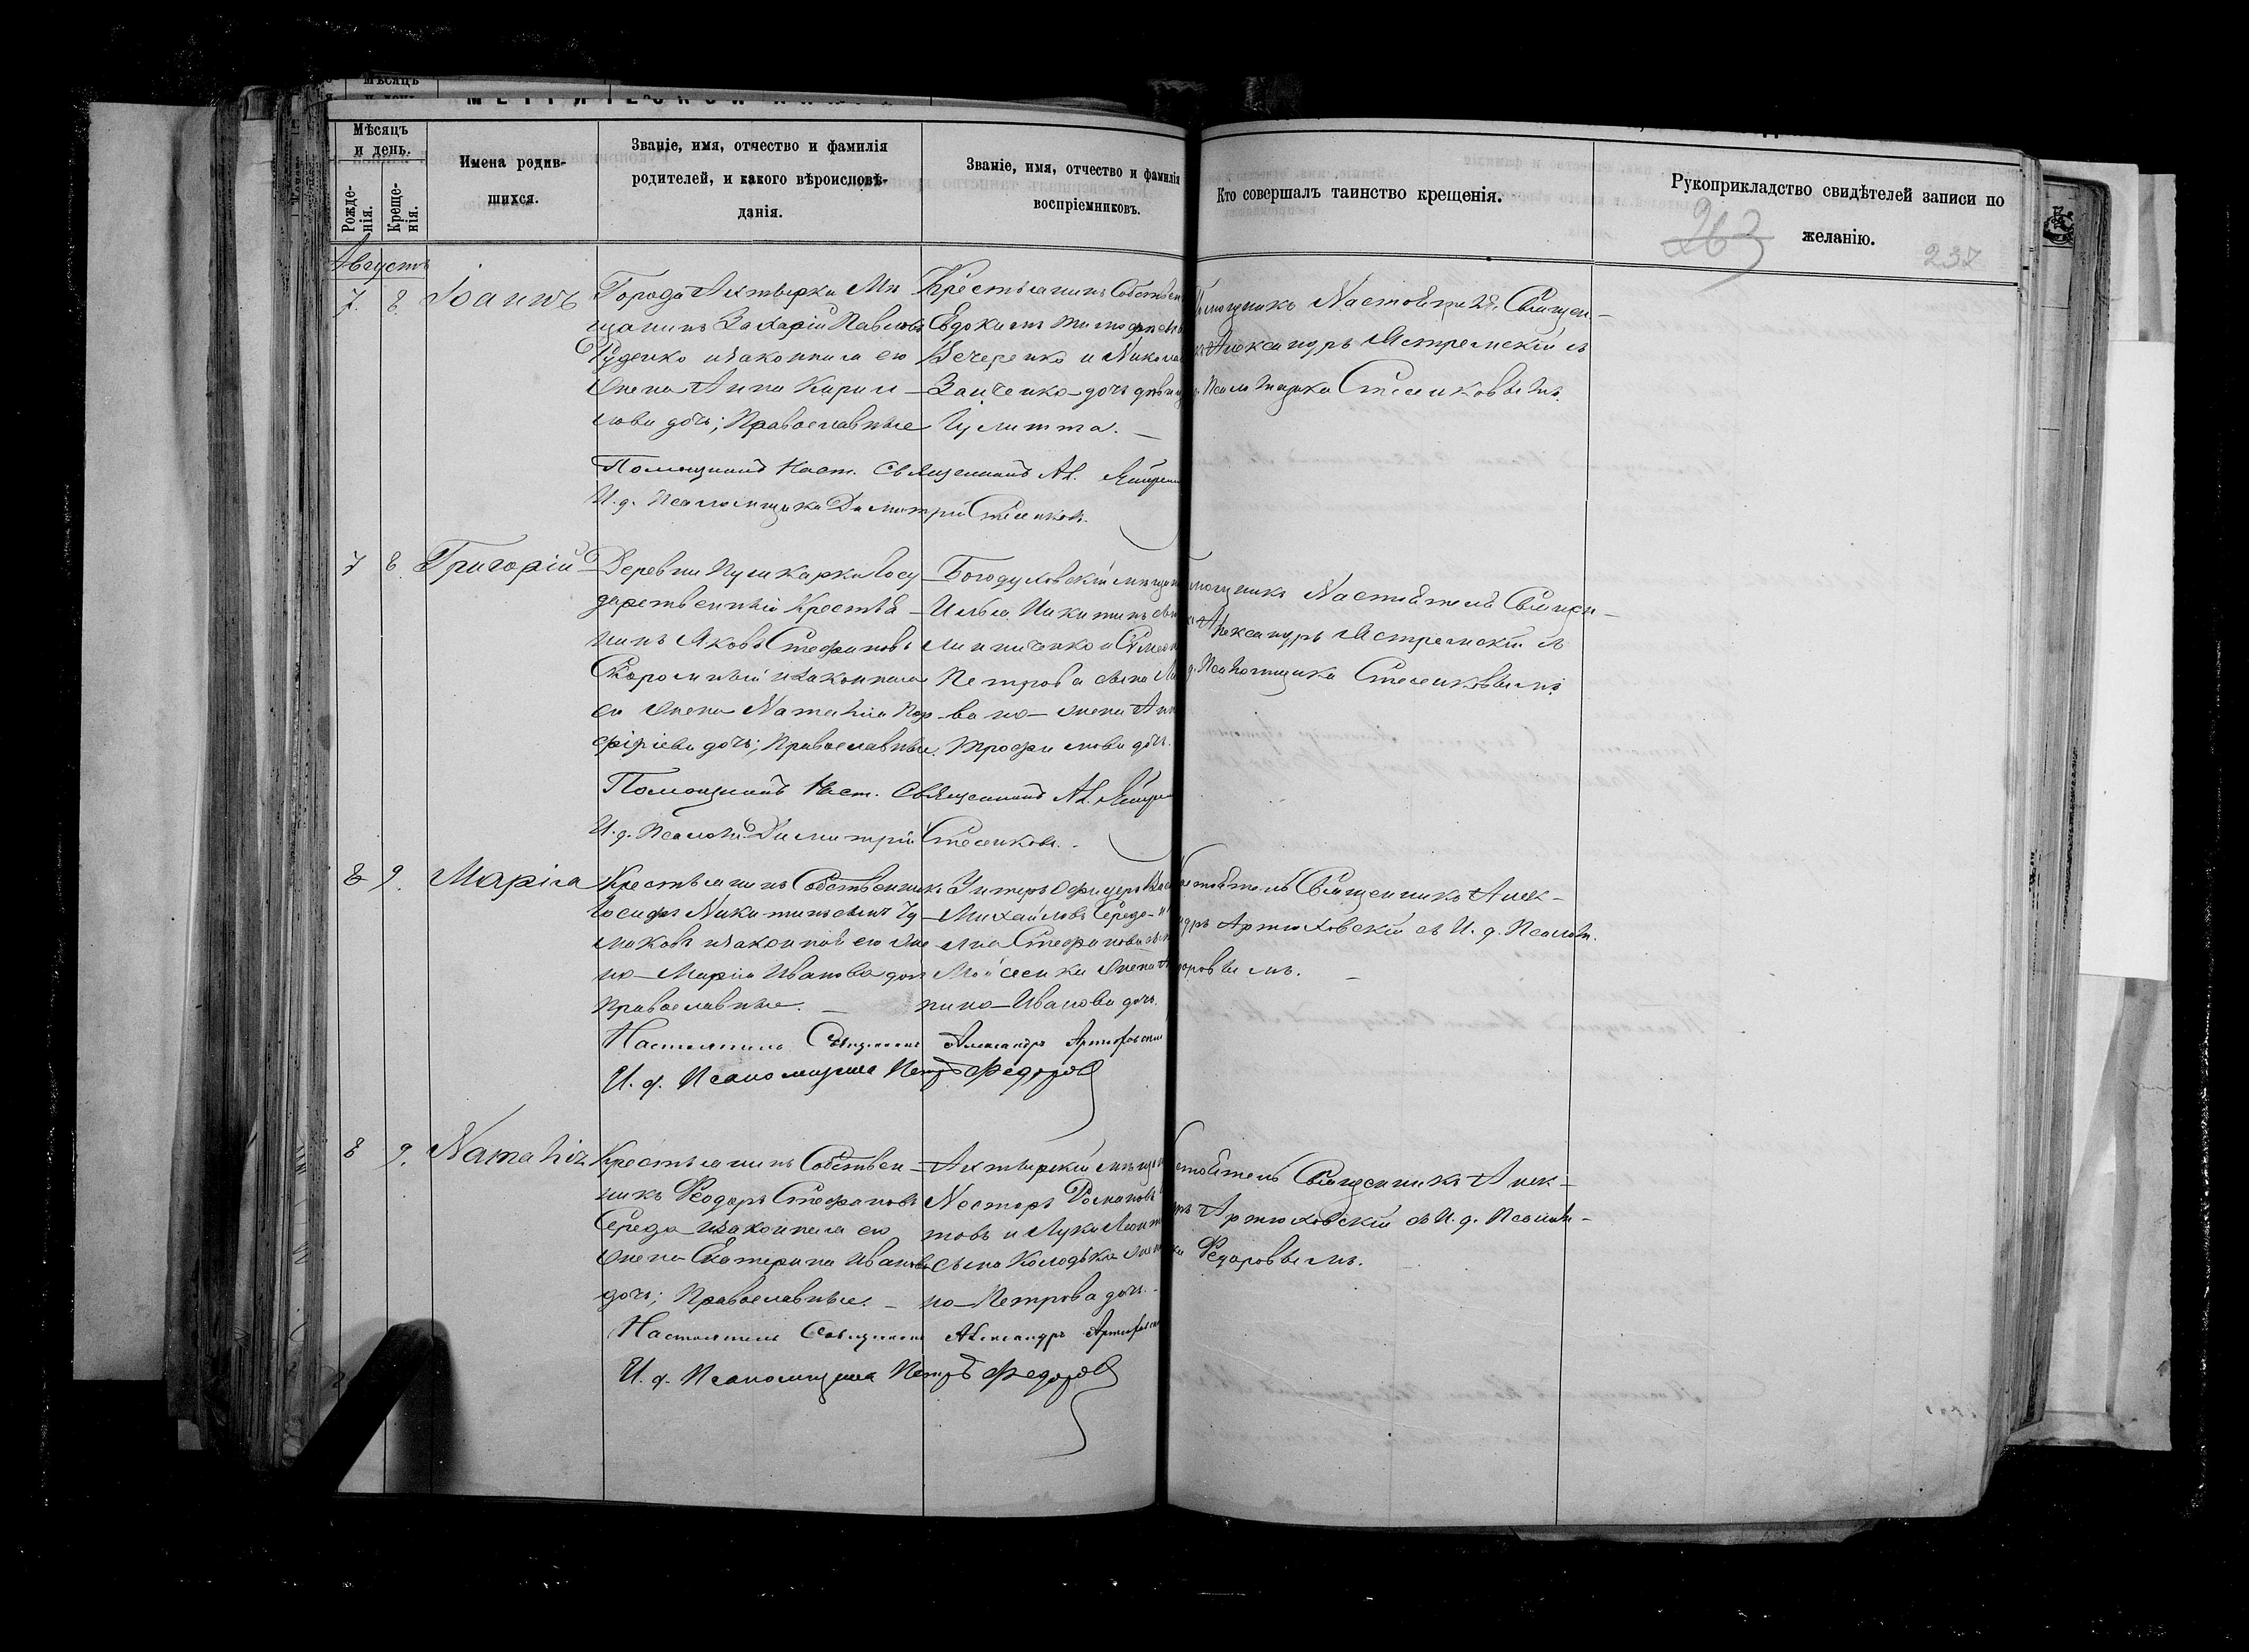 Мѣсяцъ
Мѣсяцъ
и день.
Рожде-
нія.
Креще-
нія.
Имена родив-
шихся.
Званіе, имя, отчество и фамилія
родителей, и какого вѣроисповѣ-
данія.
Званіе, имя, отчество и фамилія
воспріемниковъ.
Кто совершалъ таинство крещенія.
Рукоприкладство свидѣтелей записи по
желанію.
263
237
Августъ
7. 8 Іоаннъ
Города Ахтырки Мѣ
щанинъ Захарій Павловъ
Руденко и законная его
жена Анна Карил-
лова дочь; Православные
Крестьянинъ Собствен
Евдокимъ Тимофѣевъ
Вечеренко и Никола
Заиченко дочь дѣвица
Іулитта.
Помощникъ Настоятеля, Священ-
Александръ Ястремскій съ
Псаломщика Стесенковымъ.
Помощникъ Наст. Священникъ Ал.
И. д. Псаломщика Димитрій
7 8 Григорій
Деревни Пушкарки Госу
дарственный Крестья
нинъ Яковъ Стефановъ
и законная
его жена Наталія Пор
фиріева дочь; Православные.
Богодуховскій мѣщан
Илья Никитинъ
Петрова сына
жена Анн
Трофимова дочь.
Настоятеля Священ-
Александръ Ястремскій съ
Псаломщика
Помощникъ Наст. Священникъ Ал.
И. д. Псаломщ. Димитрій
8 9. Марія
Крестьянинъ Собственникъ
Іосифъ Никитинъ сынъ Чу
маковъ и законная его же
на Марія Иванова доч
Православные.
Унтеръ Офицеръ
Михайловъ Середа
Стефанова
Моисеенка жена
Иванова дочь.
Священникъ Алек-
Артюховскій съ И. д. Псаломщ.
Настоятель Священникъ Александръ Артюховскій
И. д. Псаломщика Петръ Федоровъ
8 9. Наталія
Крестьянинъ Собствен-
никъ Ѳеодоръ Стефановъ
Середа и законная его
жена Екатерина Иванова
дочь; Православные.
Ахтырскій мѣщан
Несторъ Романовъ
товъ и Луки
сына Колодька жен
Петрова дочь.
Священникъ Алек-
Артюховскій съ И. д. Псаломщ-
Ѳедоровымъ.
Настоятель Священникъ Александръ Артюховскій
И. д. Псаломщика Петръ Федоровъ